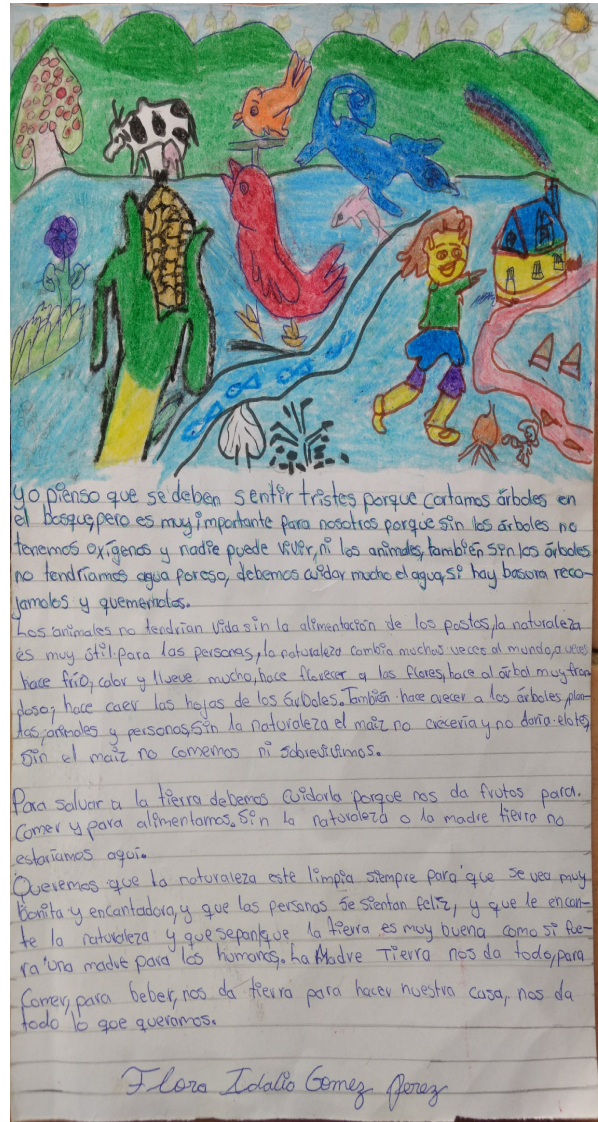 Yo pienso que se deben sentir tristes porque cortamos árboles en
el bosque, pero es muy importante para nosotros porque sin los árboles no
tenemos oxígenos y nadie puede vivir, ni los animales, también sin los árboles
no tendríamos agua poreso, debemos cuidar mucho el agua, si hay basura reco-
jamolos y quememolos.
Los animales no tendrían vida sin la alimentación de los pastos, la naturaleza
es muy útil para las personas, la naturaleza cambia muchas veces al mundo, a veces
hace frío, calor y llueve mucho, hace florecer a las flores, hace al árbol muy fron
doso, hace caer las hojas de los árboles. También hace crecer a los árboles, plan-
tas, animales y personas, sin la naturaleza el maíz no crecería y no daría elotes,
sin el maíz no comemos ni sobrevivimos.
Para salvar a la tierra debemos cuidarla porque nos da frutos para.
comer y para alimentarnos. Sin la naturaleza o la madre tierra no
estaríamos aquí.
Queremos que la naturaleza este limpia siempre para que se vea muy
bonita y encantadora, y que las personas se sientan feliz, y que le encan-
te la naturaleza y que sepan que la tierra es muy buena como si fue-
ra una madre para los humanos. La Madre Tierra nos da todo, para
comer, para beber, nos da tierra para hacer nuestra casa, nos da
todo lo que queramos.
Flora Idalia Gomez Perez